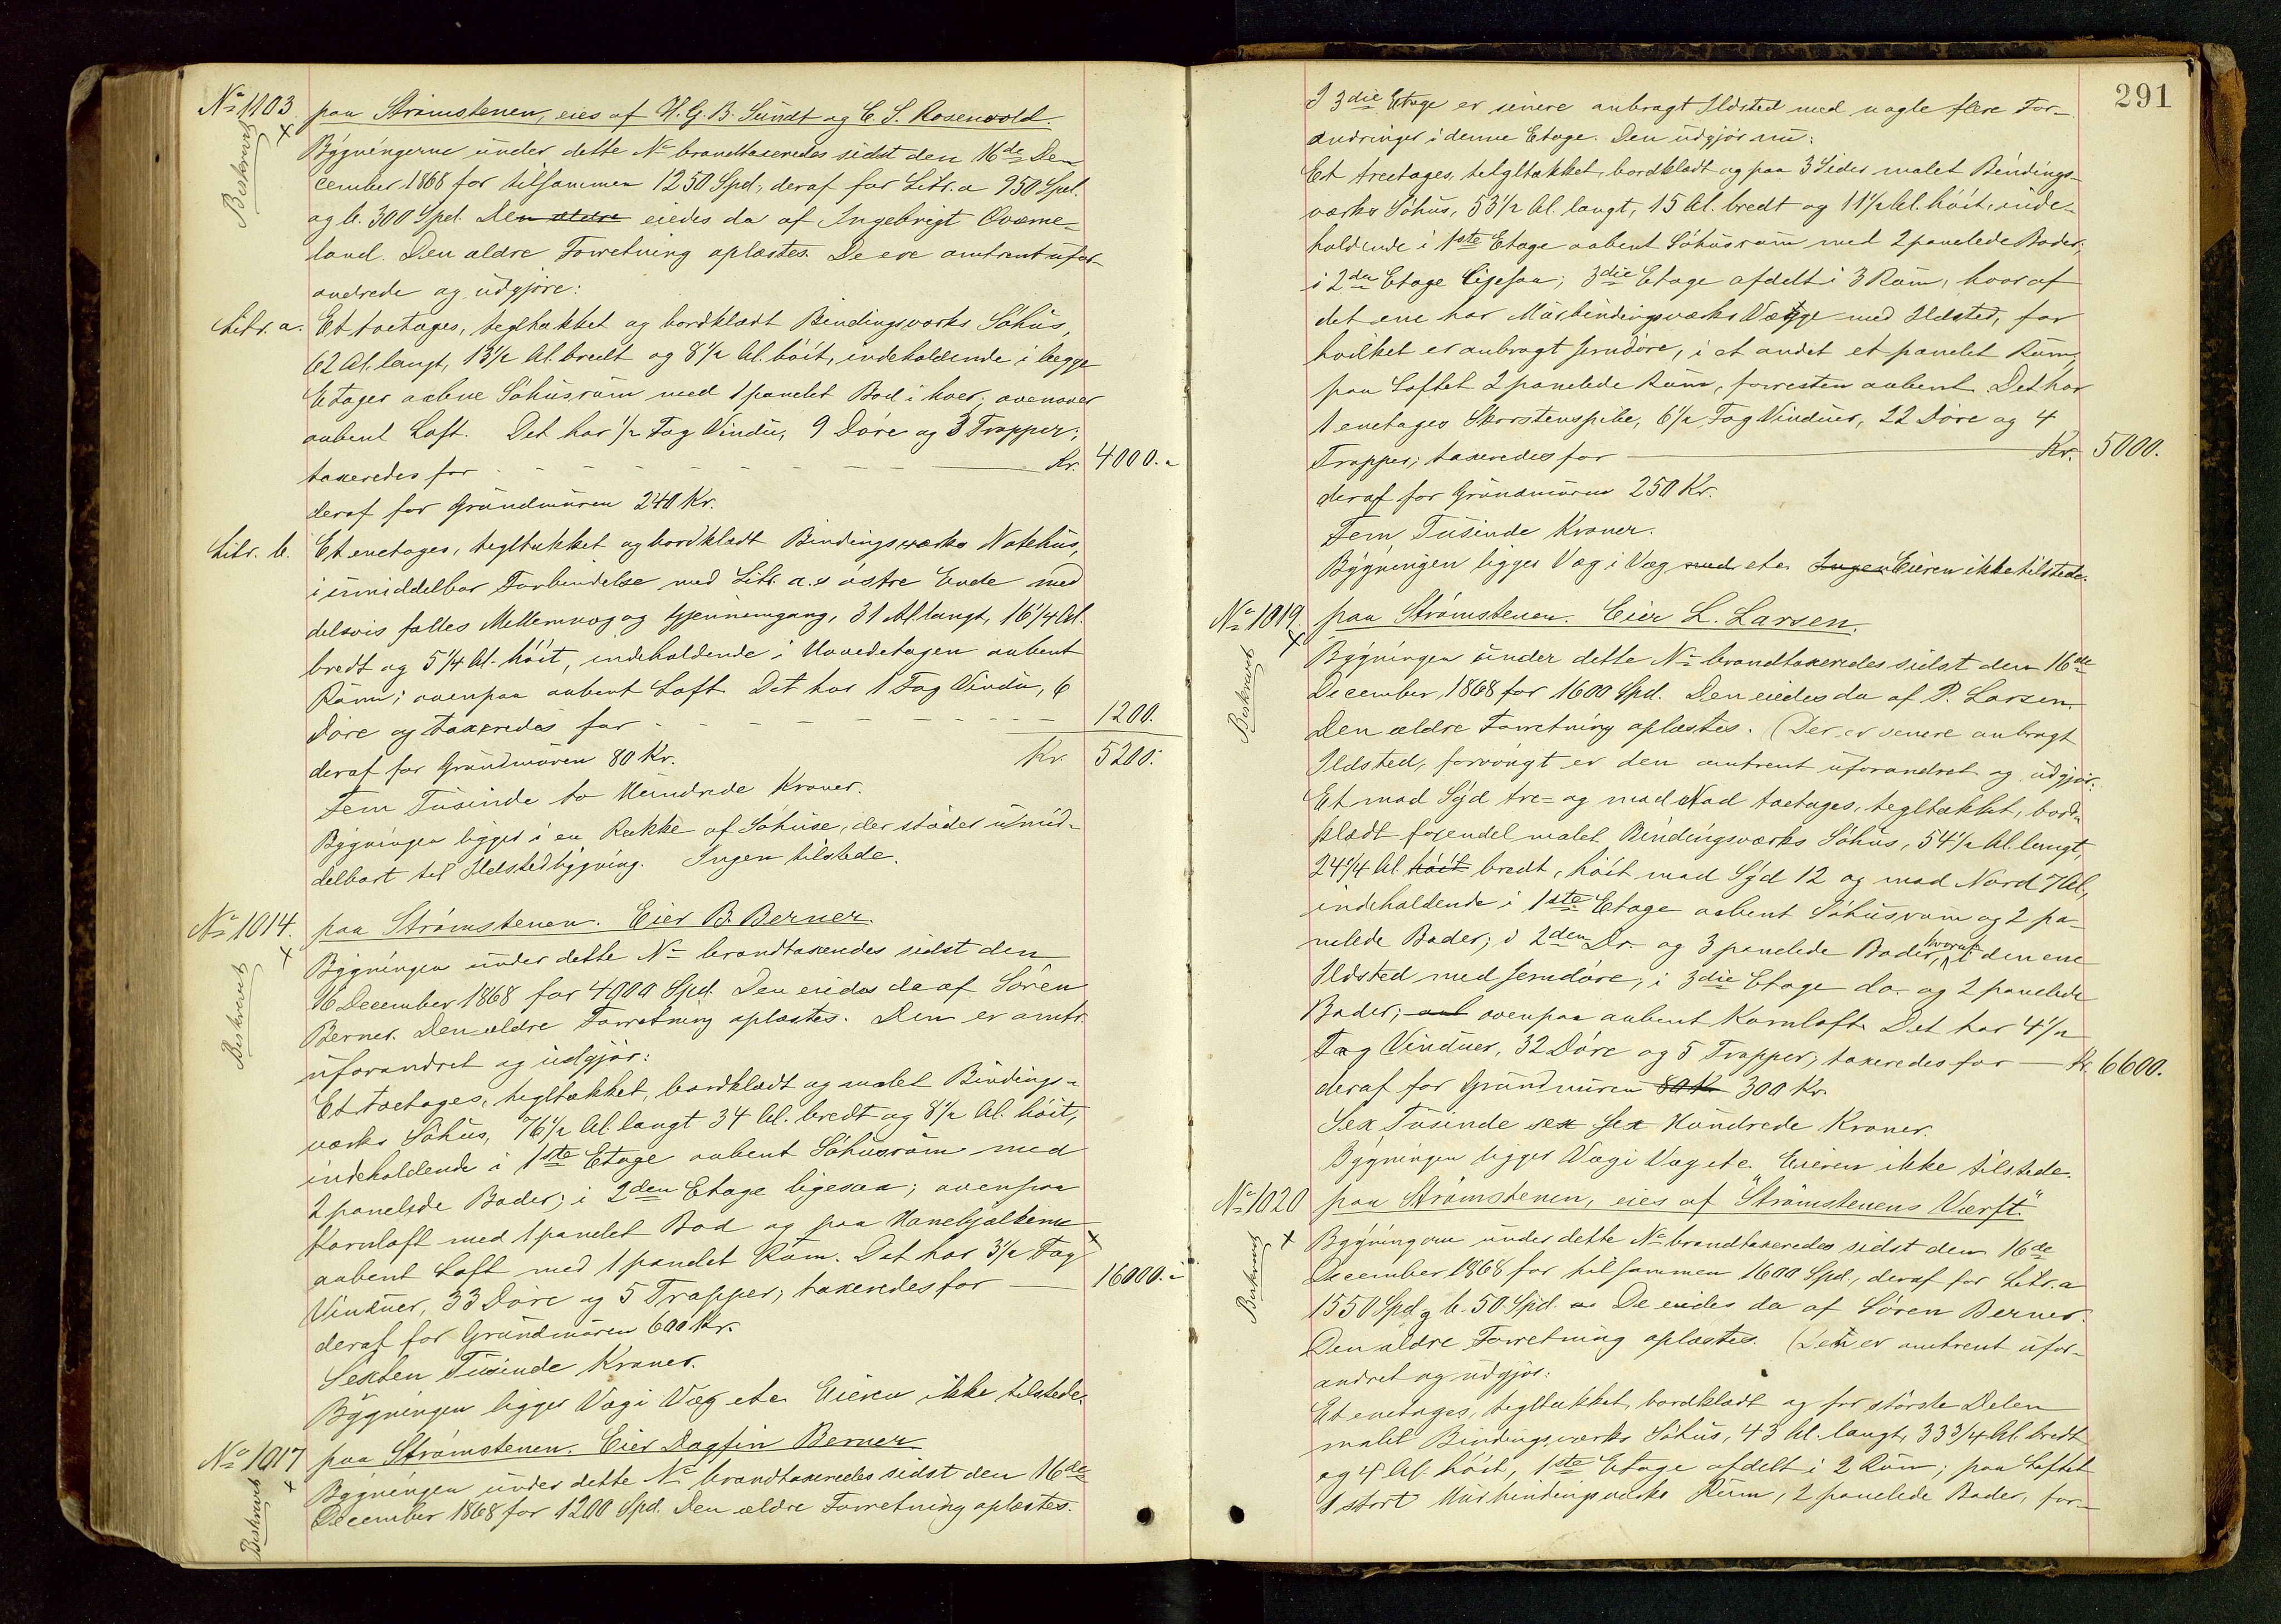 No 1103. paa Strømstenen, eies af H. G. B. Sundt og C. S. Rosenvold.
Beskrevet
Bygningerne under dette No brandtaxeredes sidst den 16de De-
cember 1868 for tilsammen 1250 Spd., deraf for Litr. a 950 Spd.
og b. 300 Spd. Den ældre eiedes da af Ingebrigt Qværne-
land. Den ældre Forretning oplæstes. De ere omtrent ufor-
andrede og udgjøre:
Litr. a. Et toetages, tegltækket og bordklædt Bindingsværks Søhus,
62 Al. langt, 13 1/2 Al. bredt og 8 1/2 Al. høit, indeholdende i begge
Etager aabne Søhusrum med 1 panelet Bod i hver; ovenover
aabent Loft. Det har 1/2 Fag Vindu, 9 Døre og 3 Trapper;
taxeredes for Kr. 4000.-
deraf for Grundmuren 240 Kr.
Litr. b. Et enetages, tegltækket og bordklædt Bindingsværks Notehus,
i umiddelbar Forbindelse med Litr. a.s østre Ende med
delsvis fælles Mellemvæg og Gjennemgang, 31 Al. langt, 16 1/4 Al.
bredt og 5 1/4 Al. høit, indeholdende i Hovedetagen aabent
Rum; ovenpaa aabent Loft. Det har 1 Fag Vindu, 6
Døre og taxeredes for 1200.
deraf for Grundmuren 80 Kr. Kr. 5200.
Fem Tusinde to Hundrede Kroner.
Bygningen ligger i en Række af Søhuse, der støder umid-
delbart til Ildstedbygning. Ingen tilstede.
No 1014. paa Strømstenen. Eier B. Berner.
Beskrevet
Bygningen under dette No brandtaxeredes sidst den
16 December 1868 for 4000 Spd. Den eiedes da af Søren
Berner. Den ældre Forretning oplæstes. Den er omtr.
uforandret og udgjør:
Et toetages, tegltækket, bordklædt og malet Bindings-
værks Søhus, 76 1/2 Al. langt 34 Al. bredt og 8 1/2 Al. høit,
indeholdende i 1ste Etage aabent Søhusrum med
2 panelede Boder; i 2den Etage ligesaa; ovenpaa
Kornloft med 1 panelet Bod og paa Hanebjælkerne
aabent Loft med 1 panelet Rum. Det har 3 1/2 Fag
Vinduer, 33 Døre og 5 Trapper; taxeredes for 16000.-
deraf for Grundmuren 600 Kr.
Sexten Tusinde Kroner.
Bygningen ligger Væg i Væg etc. Eieren ikke tilstede.
No 1017 paa Strømstenen. Eier Dagfin Berner
Beskrevet
Bygningen under dette No brandtaxeredes sidst den 16de
December 1868 for 1200 Spd. Den ældre Forretning oplæstes.
291
I 3die Etage er senere anbragt Ildsted med nogle flere For-
andringer i denne Etage. Den udgjør nu:
Et treetages, teglgtækket, bordklædt og paa 3 Sider malet Bindings-
værks Søhus, 53 1/2 Al. langt, 15 Al. bredt og 11 1/2 Al. høit, inde-
holdende i 1ste Etage aabent Søhusrum med 2 panelede Boder;
i 2den Etage ligesaa; 3die Etage afdelt i 3 Rum, hvoraf
det ene har Murbindingsværks Vægge med Ildsted, for
hvilket er anbragt Jerndøre, i et andet et panelet Rum;
paa Loftet 2 panelede Rum, forresten aabent. Det har
1 enetages Skorstenspibe, 6 1/2 Fag Vinduer, 22 Døre og 4
Trapper; taxeredes for Kr. 5000.
deraf for Grundmuren 250 Kr.
Fem Tusinde Kroner.
Bygningen ligger Væg i Væg med etc. Ingen Eieren ikke tilstede.
No 1019. paa Strømstenen. Eier L. Larsen.
Beskrevet
Bygningen under dette No brandtaxeredes sidst den 16de
December 1868 for 1600 Spd. Den eiedes da af P. Larsen.
Den ældre Forretning oplæstes. (Der er senere anbragt
Ildsted, forøvrigt er den omtrent uforandret og udgjør:
Et mod Syd tre- og mod Nord toetages, tegltækket, bord-
klædt for en del malet Bindingsværks Søhus, 54 1/2 Al. langt,
24 1/4 Al. høit bredt, høit mod Syd 12 og mod Nord 7 Al.,
indeholdende i 1ste Etage aabent Søhusrum og 2 pa-
nelede Boder; i 2den Do. og 3 panelede Boder, hvoraf i den ene
Ildsted med Jerndøre, i 3die Etage do. og 2 panelede
Boder; ovenpaa aabent Kornloft. Det har 4 1/2
Fag Vinduer, 32 Døre og 5 Trapper; taxeredes for Kr. 6600.
deraf for Grundmuren 80 Kr 300 Kr.
Sex Tusinde sex Sex Hundrede Kroner.
Bygningen ligger Væg i Væg etc. Eieren ikke tilstede.
No 1020 paa Strømstenen, eies af "Strømstenens Værft."
Beskrevet
Bygningerne under dette No brandtaxeredes sidst den 16de
December 1868 for tilsammen 1600 Spd., deraf for Litr. a
1550 Spd. og b. 50 Spd. De eiedes da af Søren Berner.
Den ældre Forretning oplæstes. (Den er omtrent ufor-
andret og udgjør:
Et enetages, tegltækket, bordklædt og for største Delen
malet Bindingsværks Søhus, 43 Al. langt, 33 3/4 Al. bredt
og 4 Al. høit, 1ste Etage afdelt i 2 Rum; paa Loftet
1 stort Murbindingsværks Rum, 2 panelede Boder, for-